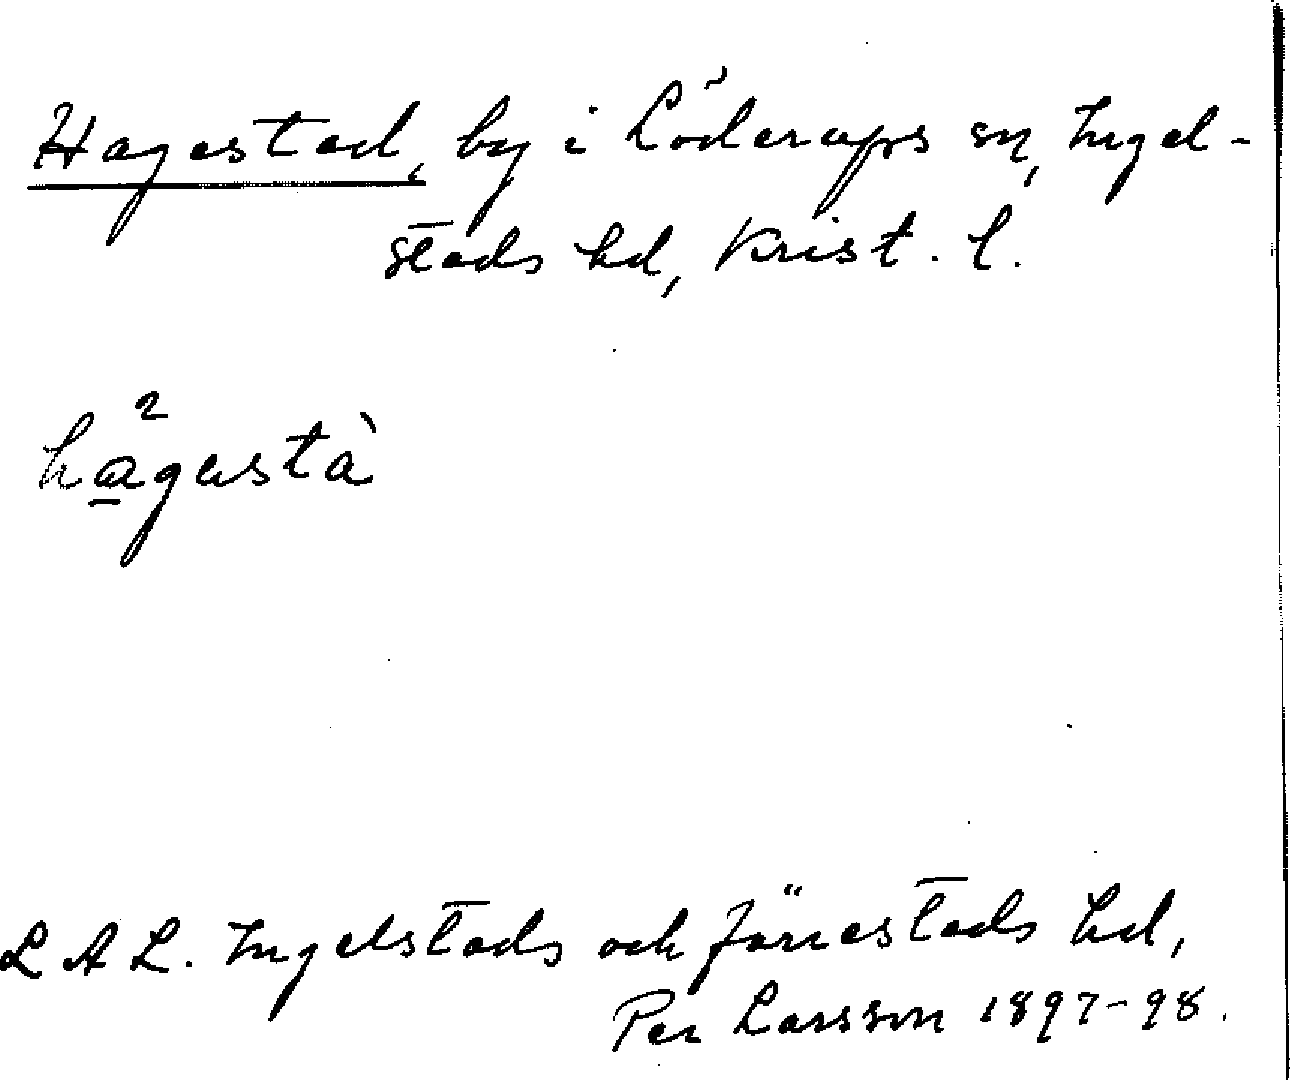 Hagestad, by i Löderups sn, Ingel-
stads hd, Krist. l.
ha̲²gestà
LAL. Ingelstads och Järrestads hd,
Per Larsson 1897-98.